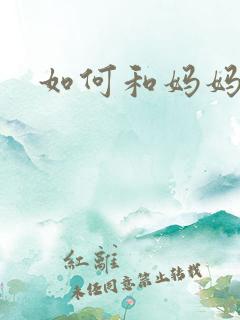 如何和妈妈
紅離
未经同意禁止转载